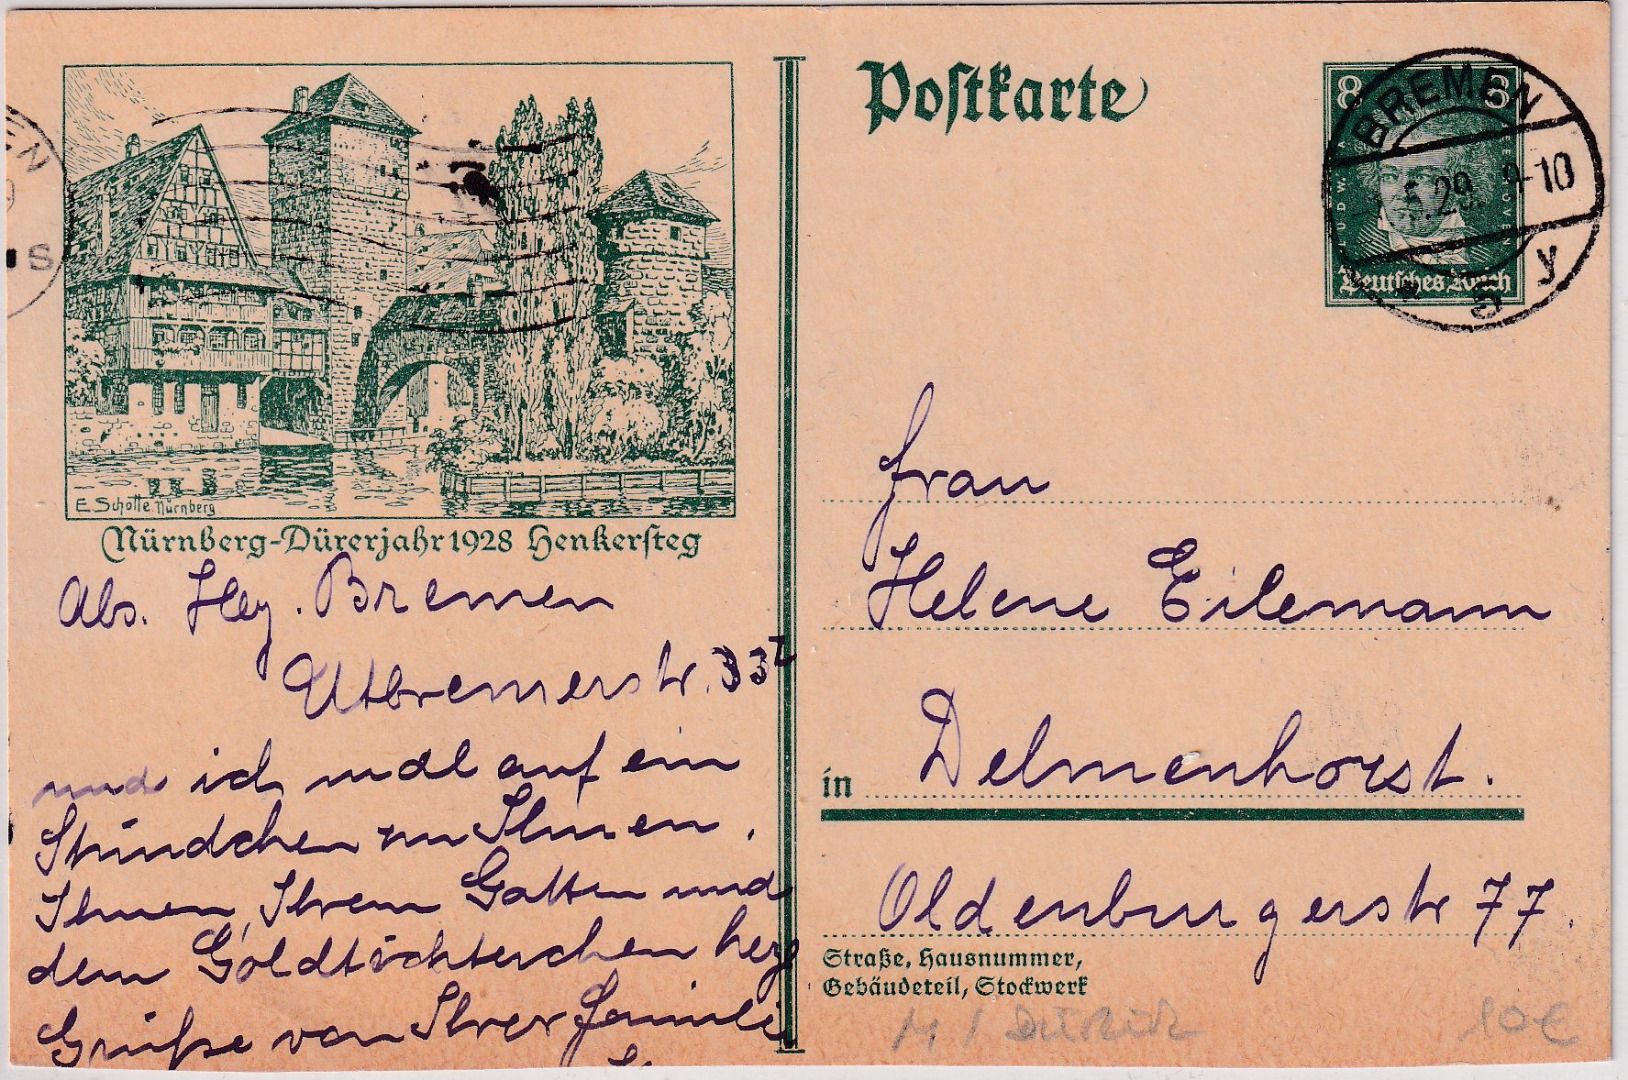 Postkarte
8 8
Deutsches Reich
BREMEN
5.29. 9-10
5 y
EN
S
E Schotte Nürnberg
Nürnberg-Dürerjahr 1928 Henkersteg
Abs. Hey. Bremen
Utbremerstr. 33 I
und ich mal auf ein
Stündchen zu Ihnen.
Ihnen, Ihrem Gatten und
dem Goldtöchterchen herzl
Grüße von Ihrer Familie
Frau
Helene Eilemann
in Delmenhorst.
Oldenburgerstr 77.
Straße, Hausnummer,
Gebäudeteil, Stockwerk
10€